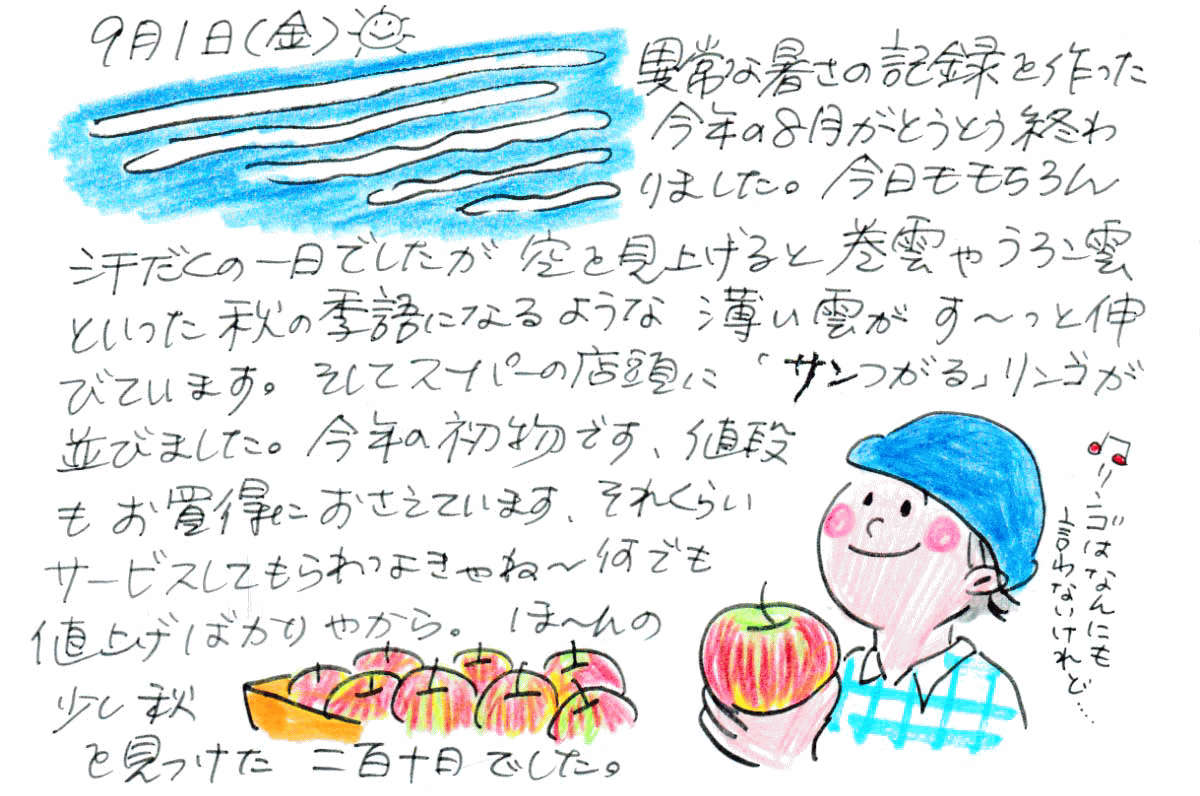 9月1日(金)
異常な暑さの記録を作った
今年の8月がとうとう終わ
りました。今日ももちろん
汗だくの一日でしたが空を見上げると巻雲やうろこ雲
といった秋の季語になるような薄い雲がす〜っと伸
びています。そしてスーパーの店頭に「サンつがる」リンゴが
並びました。今年の初物です、値段
もお買得におさえています、それくらい
サービスしてもらわってよきゃね〜何でも
値上げばかりやから。ほ〜んの
少し秋
を見つけた二百十日でした。
♫リンゴはなんにも
言わないけれど…